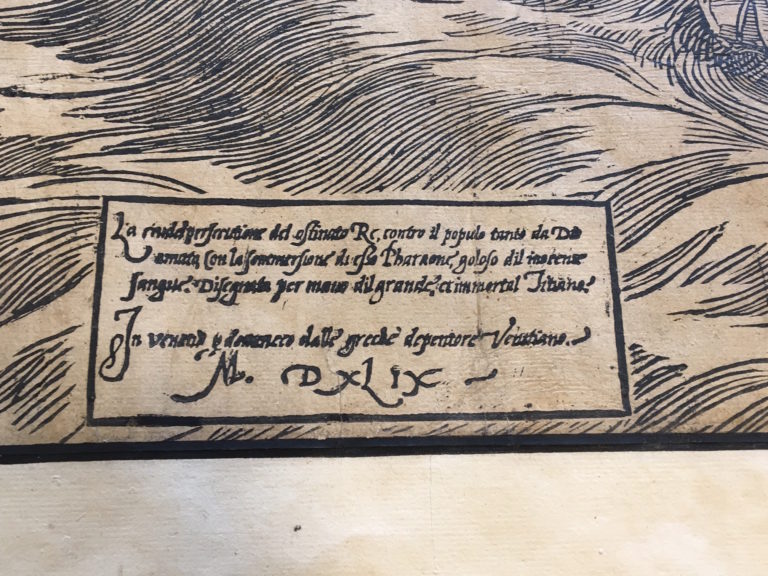 La crudel persecutione del ostinato Re, contro il populo tanto da Dio
amata, Con la sommersione di esso Pharaone goloso dil inocente
sangue Disegnata per mano dil grande, et immortal Titiano.
In venetia p domenico dalle greche depentore Venitiano.
M. DXLIX